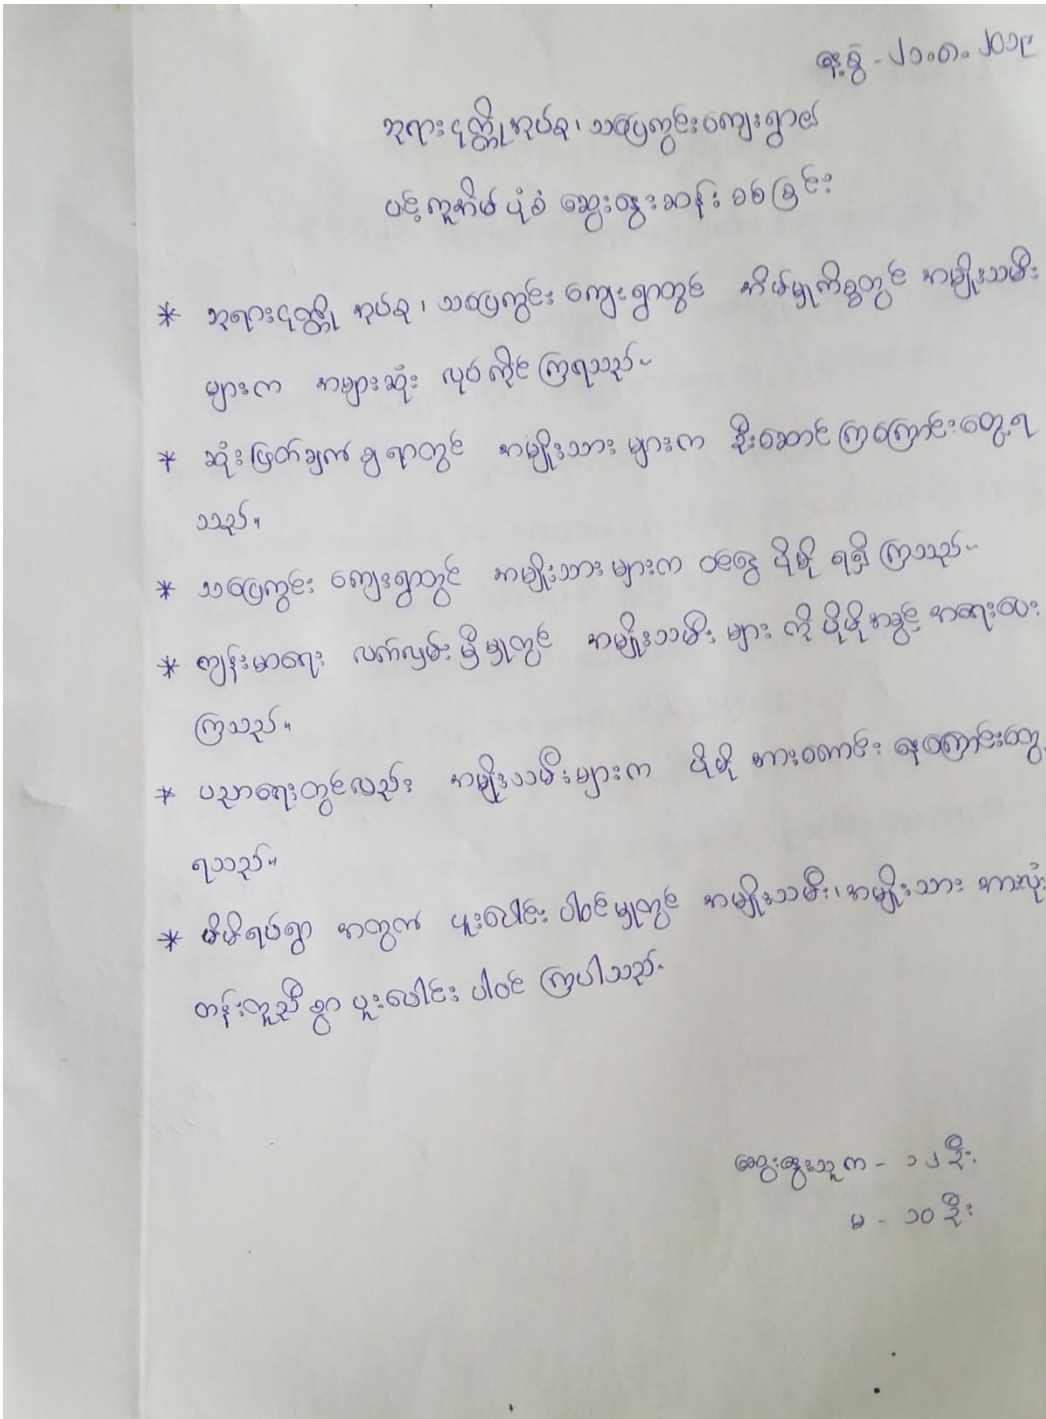 နေ့စွဲ - ၂၁.၈.၂၀၁၉
ဘုရားငုတ္တိုအုပ်စု၊ သပြေကွင်းကျေးရွာ၏
ပင့်ကူအိမ်ပုံစံ ဆွေးနွေးဆန်းစစ်ခြင်း
* ဘုရားငုတ္တို အုပ်စု၊ သပြေကွင်း ကျေးရွာတွင် အိမ်မှုကိစ္စတွင် အမျိုးသမီး
များက အများဆုံး လုပ်ကိုင်ကြရသည်။
* ဆုံးဖြတ်ချက်ချရာတွင် အမျိုးသားများက ဦးဆောင်ကြကြောင်းတွေ့ရ
သည်။
* သပြေကွင်း ကျေးရွာတွင် အမျိုးသားများက ဝင်ငွေ ပိုမို ရရှိကြသည်။
* ကျန်းမာရေး လက်လှမ်းမှီမှုတွင် အမျိုးသမီး များ ကို ပိုမိုအခွင့် အရေးပေး
ကြသည်။
* ပညာရေးတွင်လည်း အမျိုးသမီးများက ပိုမို အားကောင်း နေကြောင်းတွေ့
ရသည်။
* မိမိရပ်ရွာ အတွက် ပူးပေါင်း ပါဝင်မှုတွင် အမျိုးသမီး၊ အမျိုးသား အားလုံး
တန်းတူညီစွာ ပူးပေါင်း ပါဝင် ကြပါသည်။
ဆွေးနွေးသူ က - ၁၂ ဦး
မ - ၁၀ ဦး